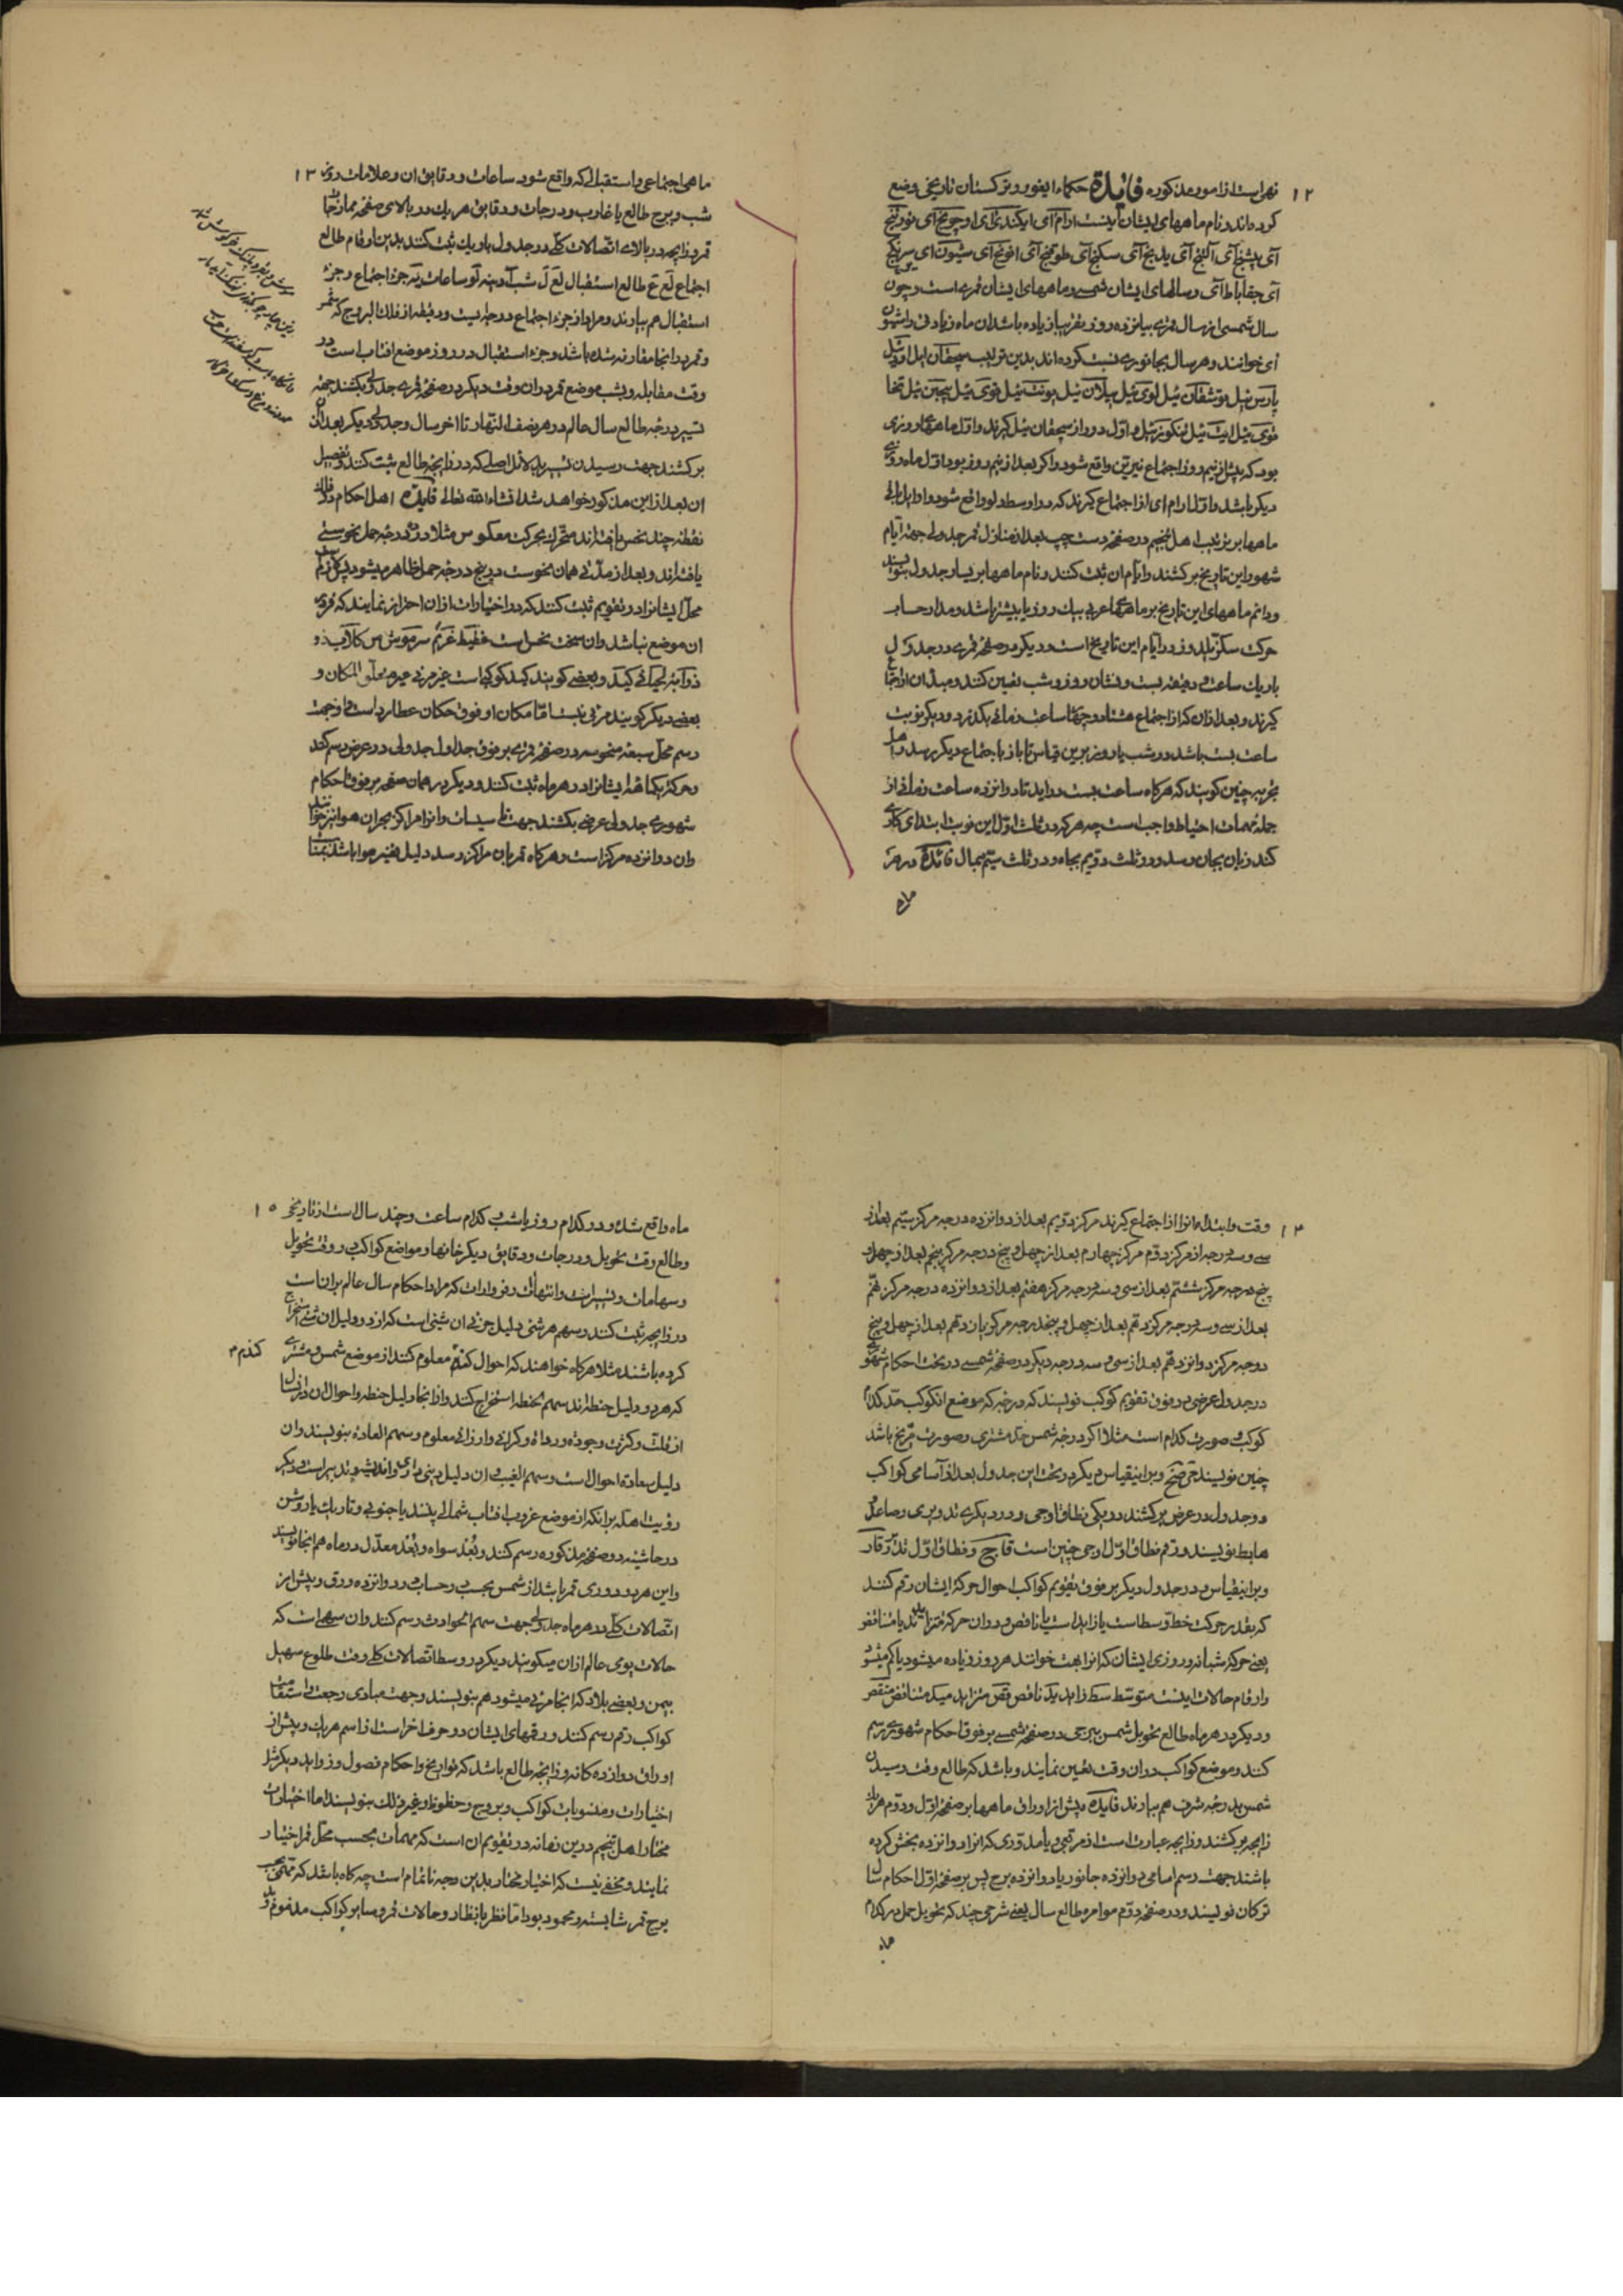 ۱۲
نهی است از امور مذکوره فائدة حکماء ایغور و ترکستان تاریخی وضع
کرده‌اند و نام ماههای ایشان اینست ارام آی ایکندی آی اوچونج آی تورتنج
آی بیشنج آی آلتنج آی یدنج آی سکزنج آی طوقنج آی اوننج آی
آی جقاباط آی و سالهای ایشان شمسی و ماههای ایشان قمری است و چون
سال شمسی از سال قمری بیانزده روز بتقریبا زیاده باشد ان ماه زیادتی را شون
آی خوانند و هر سال بجانوری نسبت کرده‌اند بدین ترتیب سچقان ئیل اودئیل
پارس ئیل توشقان ئیل لوی ئیل ییلان ئیل یونت ئیل قوی ئیل پیچین ئیل تخا
قوی ئیل ایت ئیل تنکوز ئیل و اول دور از سچقان ئیل کیرند و اول ماهها روزی
بود که پیش از نیم روز اجتماع نیرین واقع شود و اکر بعد از نیم روز بود اول ماه روزی
دیکر باشد و اول ارام آی از اجتماع کیرند که در اواسط دلو واقع شود و اوایل باقی
ماهها برین ترتیب اهل تنجیم در صفحه دست چپ بعد از منازل قمر جدولی جهة ایام
شهور این تاریخ برکشند و ایام ان ثبت کنند و نام ماهها بر یسار جدول بنویسند
و دائم ماههای این تاریخ بر ماههای عربی بیک روز یا بیشتر باشد و مدار حساب
حرکت سکزیلدوز در ایام این تاریخ است و دیکر در صفحه قمری در جدول
باریک ساعت بست و نشان روز و شب تعیین کنند و مبدا ان از اجتماع
کیرند و بعد از ان که از اجتماع هشتاد و چهار ساعت زمانی بکذرد و دیکر نوبت
ساعت بست باشد در شب یا روز برین قیاس تا باز باجتماع دیکر رسد و اهل
تجربه چنین کویند که هر کاه ساعت بست در اید تا دوانزده ساعت زمانی از
جمله مهمات احتیاط واجب است چه هر که در ثلث اول این نوبت ابتدای کاری
کند زیان بجان رسد و در ثلث دویم بجاه و در ثلث سیم بمال فائدة در هر
ماه
۱۳
ماهی اجتماعی و استقبالی که واقع شود ساعات و دقایق ان و علامات روز
شب و برج طالع یا غارب و درجات و دقایق هر یک در بالای صفحه ممازجات
قمر و زایچه در بالای اتصالات کلی در جدول باریک ثبت کنند بدین ارقام طالع
استقبال هم بیارند و مراد از جزء اجتماع درجه ایست و دقیقه از فلک البروج که شمس
و قمر در انجا مقارنه شده باشد و جزء استقبال در روز موضع افتاب است در
وقت مقابله و شب موضع قمر در ان وقت دیکر در صفحه قمری جدولی بکشند جهة
تسییر درجه طالع سال عالم در هر نصف النهار تا اخر سال و جدولی دیکر بعد از ان
برکشند جهت رسیدن تسییر بدلائل اصلی که در زایچه طالع ثبت کنند و تفصیل
ان بعد از این مذکور خواهد شد انشاء الله تعالی فایده اهل احکام در فلک
نقطه چند نحس یافته‌اند متحرک بحرکت معکوس مثلا در ده درجه حمل نحوستی
یافته‌اند و بعد از مدتی همان نحوست در پنج درجه حمل ظاهر میشود پس لازم
محل ایشانرا در تقویم ثبت کنند که در اختیارات از ان احتراز نمایند که قمر در
ان موضع نباشد و ان سخت نحس است غطیط غریم سرموش س کلاب ذو
ذوآبه لحیانی کید و بعضی کویند کید کوکبی است غیر مرئی المکان و
بعضی دیکر کویند مرئی نیست اما مکان او فوق مکان عطارد است و جهت
رسم محل سبعه منحوسه در صفحه قمری بر فوق جداول جدولی در عرض رسم کنند
و حرکة یکماهه ایشانرا در هر ماه ثبت کنند و دیکر در همان صفحه بر فوق احکام
شهوری جدولی عرضی بکشند جهت تاسیسات و انرا مراکز بحران هوا نیز خوانند
وان دوانزده مرکز است و هر کاه قمر بان مراکز رسد دلیل تغیر هوا باشد
۱۴
وقت و ابتداء انرا از اجتماع کیرند مرکز دویم بعد از دوانزده درجه مرکز سیم بعد از
سی و سه درجه از مرکز دوم مرکز چهارم بعد از چهل و پنج درجه مرکز پنجم بعد از چهل و
پنج درجه مرکز ششم بعد از سی و سه درجه مرکز هفتم بعد از دوانزده درجه مرکز نهم
بعد از سی و سه درجه مرکز دهم بعد از چهل و پنج درجه مرکز یازدهم بعد از چهل و پنج
درجه مرکز دوانزدهم بعد از سی و سه درجه دیکر در صفحه شمسی در تحت احکام شهوری
در جدول عرضی در فوق تقویم کوکب نویسند که درجه که موضع انکوکب حد کدام
کوکب و صورت کدام است مثلا اکر درجه شمس حد مشتری و صورت مریخ باشد
چنین نویسند و برینقیاس دیکر در تحت این جدول بعد از اسامی کواکب
دو جدول در عرض برکشند در یکی نطاق اوجی و در دیکری تدویری و صاعد و
هابط نویسند و رقم نطاق اول اوجی چنین است و نطاق اول تدویر
و برینقیاس در جدول دیکر بر فوق تقویم کواکب احوال حرکة ایشان رقم کنند
که بقدر حرکت خط وسط است یا زاید است یا ناقص و در ان حرکة متزایدند یا متناقص
یعنی حرکة شبانه‌روزی ایشان که انرا بهت خوانند هر روز زیاده میشود یا کم میشود
و ارقام حالات اینست متوسط سط زاید ید ناقص قص متزاید متناقص متقص
و دیکر در هر ماه طالع تحویل شمس ببرجی در صفحه شمسی بر فوق احکام شهوری رسم
کنند و موضع کواکب در ان وقت تعیین نمایند و باشد که طالع وقت رسیدن
شمس بدرجه شرف هم بیارند فایده پیش از اوراق ماهها بر صفحه اول و دوم هر یک
زایچه برکشند و زایچه عبارت است از مربعی یا مدوری که انرا دوانزده بخش کرده
باشند جهت رسم اسامی دوانزده جانور یا دوانزده برج پس بر صفحه اول احکام سال
ترکان نویسند و در صفحه دوم موامره طالع سال یعنی شرحی چند که تحویل حمل در کدام
ماه
۱۵
ماه واقع شده و در کدام روز یا شب و کدام ساعت و چند سال است از تاریخ
و طالع وقت تحویل و درجات و دقایق دیکر خانها و مواضع کواکب در وقت تحویل
و سهامات و تسییرات و انتهاآت و فردارات که مراد احکام سال عالم بران است
در زایچه ثبت کنند و سهم هر شئی دلیل جزئی ان شئی است که از دو دلیل ان شئ استخراج
کرده باشند مثلا هر کاه خواهند که احوال کندم معلوم کنند از موضع شمس و مشتری
کندم
که هر دو دلیل حنطه‌اند سهم الحنطه استخراج کنند و از انجا دلیل حنطه و احوال ان در انسال
از قلت و کثرت و جوده و رداة و کرانی و ارزانی معلوم و سهم السعادة بنویسند و ان
دلیل سعادة احوال است و سهم الغیب و ان دلیل و اندیشه و تدبیر است دیکر
رؤیت اهله برانکه از موضع غروب افتاب شمالی بینند یا جنوبی و تاریک یا روشن
در حاشیه دو صفحه مذکوره رسم کنند و بعد سواه و بعد معدل در ماه هم انجا نویسند
و این هر دو دوری قمر باشد از شمس بحسب و حساب و در دوانزده ورق و پیش از
اتصالات کلی در هر ماه جدولی جهت سهم الحوادث رسم کنند و ان سهمی است که
حالات یومی عالم از ان میکویند دیکر در وسط اتصالات کلی وقت طلوع سهیل
بیمن و بعضی بلاد که انجا مرئی میشود هم بنویسند و جهت مبادی رجعت و استقامت
کواکب رقم رسم کنند و رقمهای ایشان دو حرف اخر است از اسم هر یک و پیش از
اوراق دوازده کانه و زایچه طالع باشد که تواریخ و احکام فصول و زواید دیکر مثل
اختیارات و منسوبات کواکب و بروج و حظوظ و غیر ذلک بنویسند اما اختیارات
مختار اهل تنجیم درین زمانه در تقویم ان است که مهمات بحسب محل قمر اختیار
نمایند و مخفی نیست که اختیار مختار بدین وجه ناتمام است چه کاه باشد که قمر بحسب
برج قمر شایسته و محمود بود اما نظر بانظار و حالات قمر و سایر کواکب مذموم و